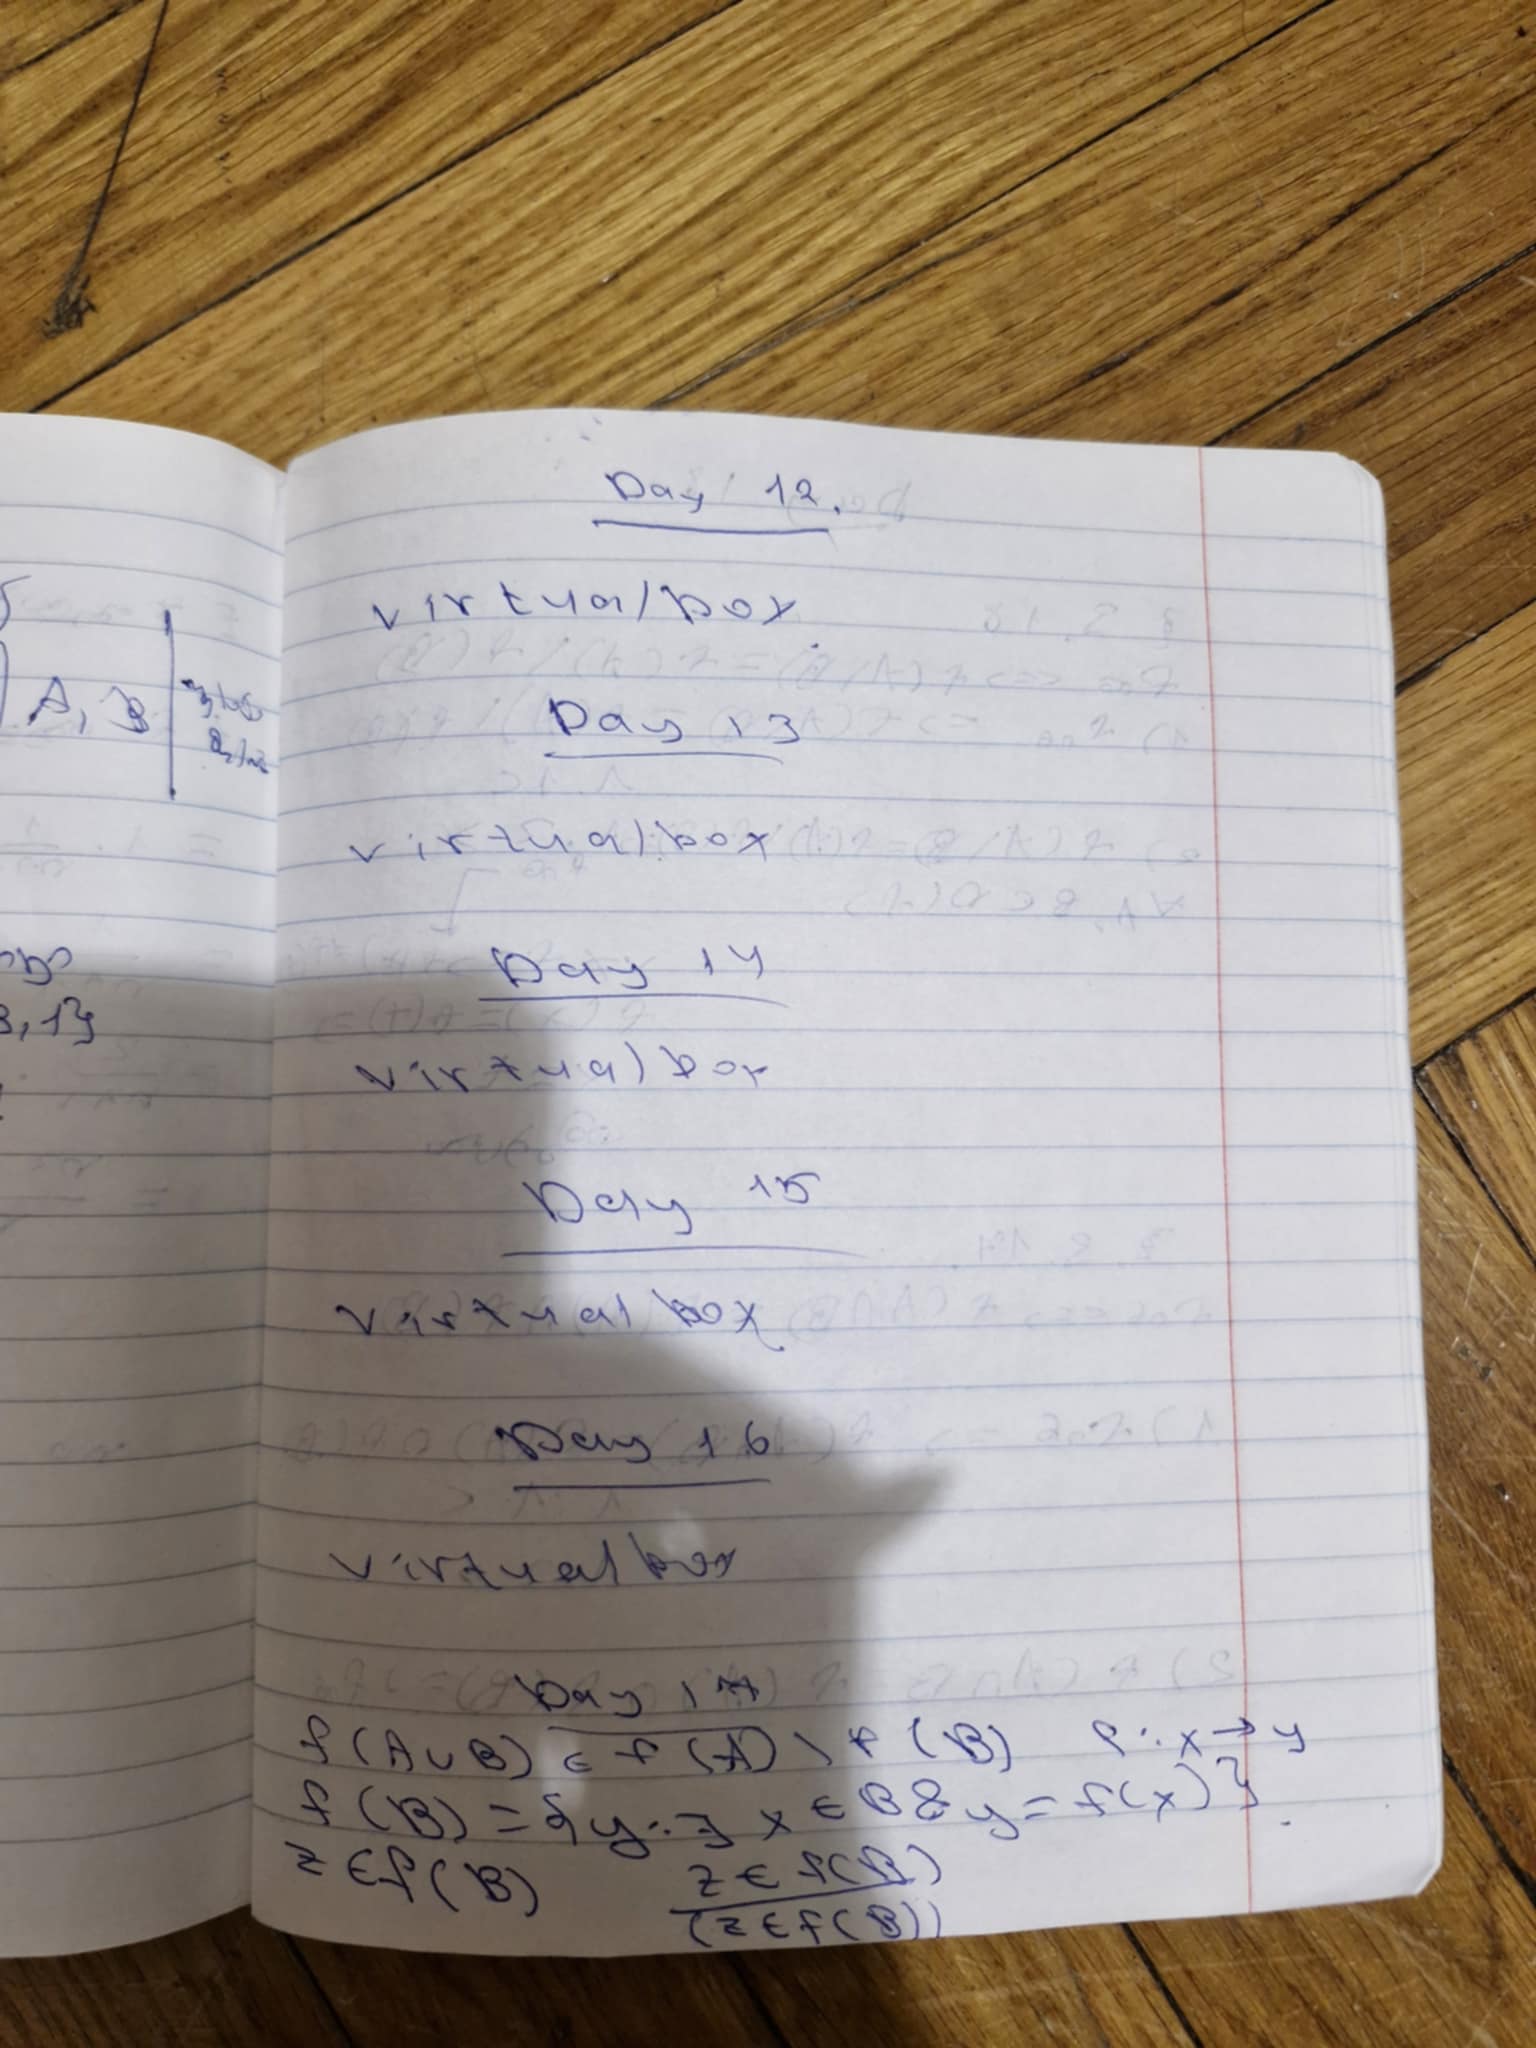 A, B
3, 1}
Day 12.
virtualbox.
Day 13
virtualbox
Day 14
virtualbox
Day 15
virtualbox
Day 16
virtualbox
Day 17
f(A∪B) ∈ f(A) \ f(B) f: x → y
f(B) = {y: ∃ x ∈ B & y = f(x)}.
z ∈ f(B) z ∈ f(B)
(z ∈ f(B))